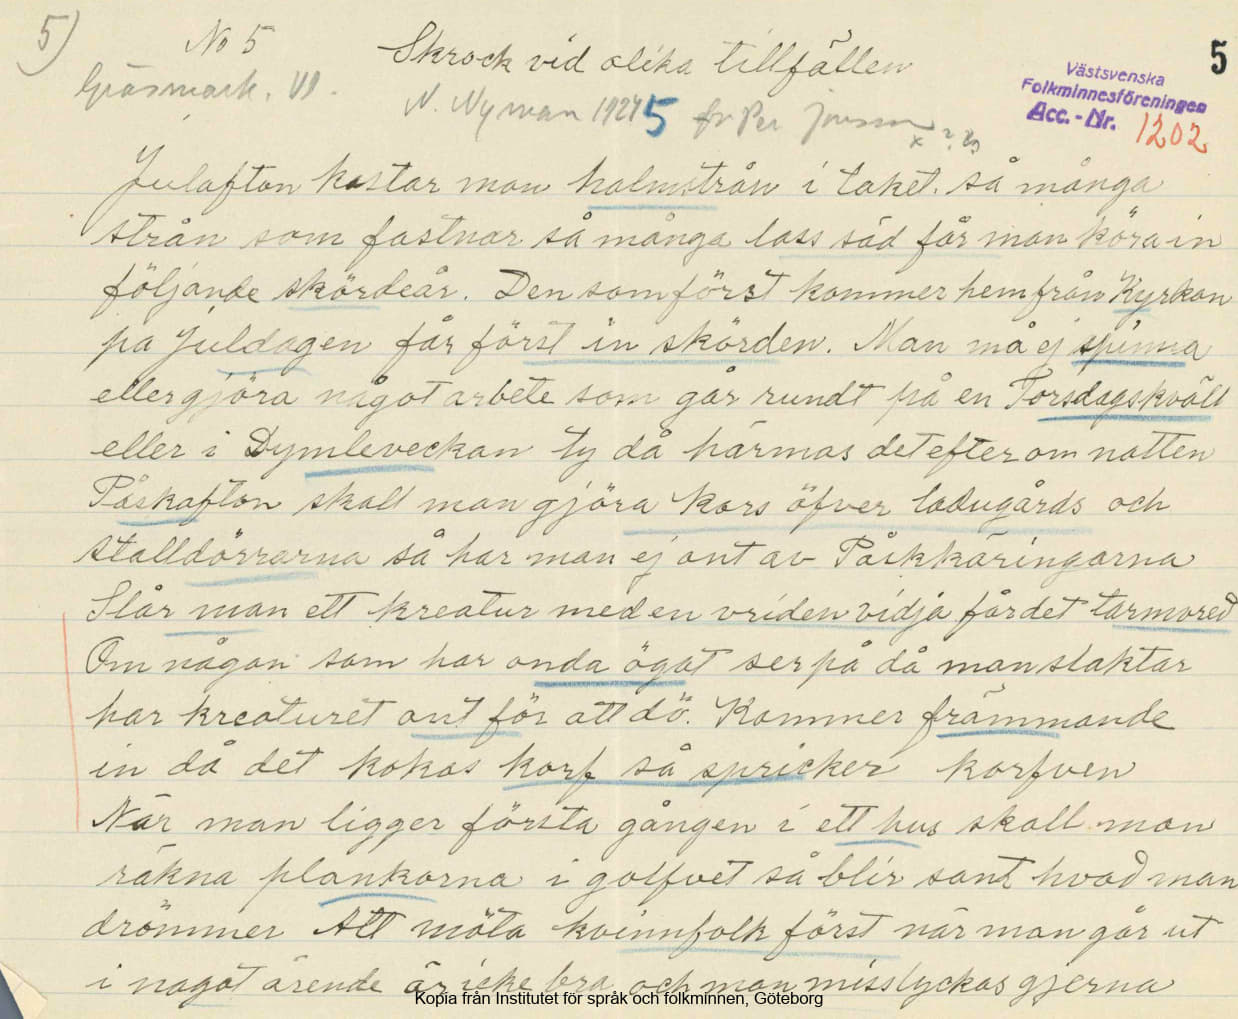 5)
No 5
Skrock vid olika tillfällen
5
Gräsmark. Vd.
N. Nyman 1924
5
fr Per Jonsson
Västsvenska
Folkminnesföreningen
Acc.-Nr. 1202
Julafton kastar man halmstrån i taket. så många
strån som fastnar så många lass säd får man köra in
följande skördeår. Den som först kommer hem från Kyrkan
pa Juldagen får först in skörden. Man må ej spinna
eller gjöra något arbete som går rundt på en Torsdagskväll
eller i Dymleveckan ty då härmas det efter om natten
Påskafton skall man gjöra kors öfver ladugårds och
stalldörrarna så har man ej ont av Påskkäringarna
Slår man ett kreatur med en vriden vidja får det tarmvred
Om någon som har onda ögat ser på då man slaktar
har kreaturet ont för att dö. Kommer främmande
in då det kokas korf så spricker korfven
När man ligger första gången i ett hus skall man
räkna plankorna i golfvet så blir sant hvad man
drömmer Att möta kvinnfolk först när man går ut
i nagot ärende är icke bra och man misslyckas gjerna
Kopia från Institutet för språk och folkminnen, Göteborg